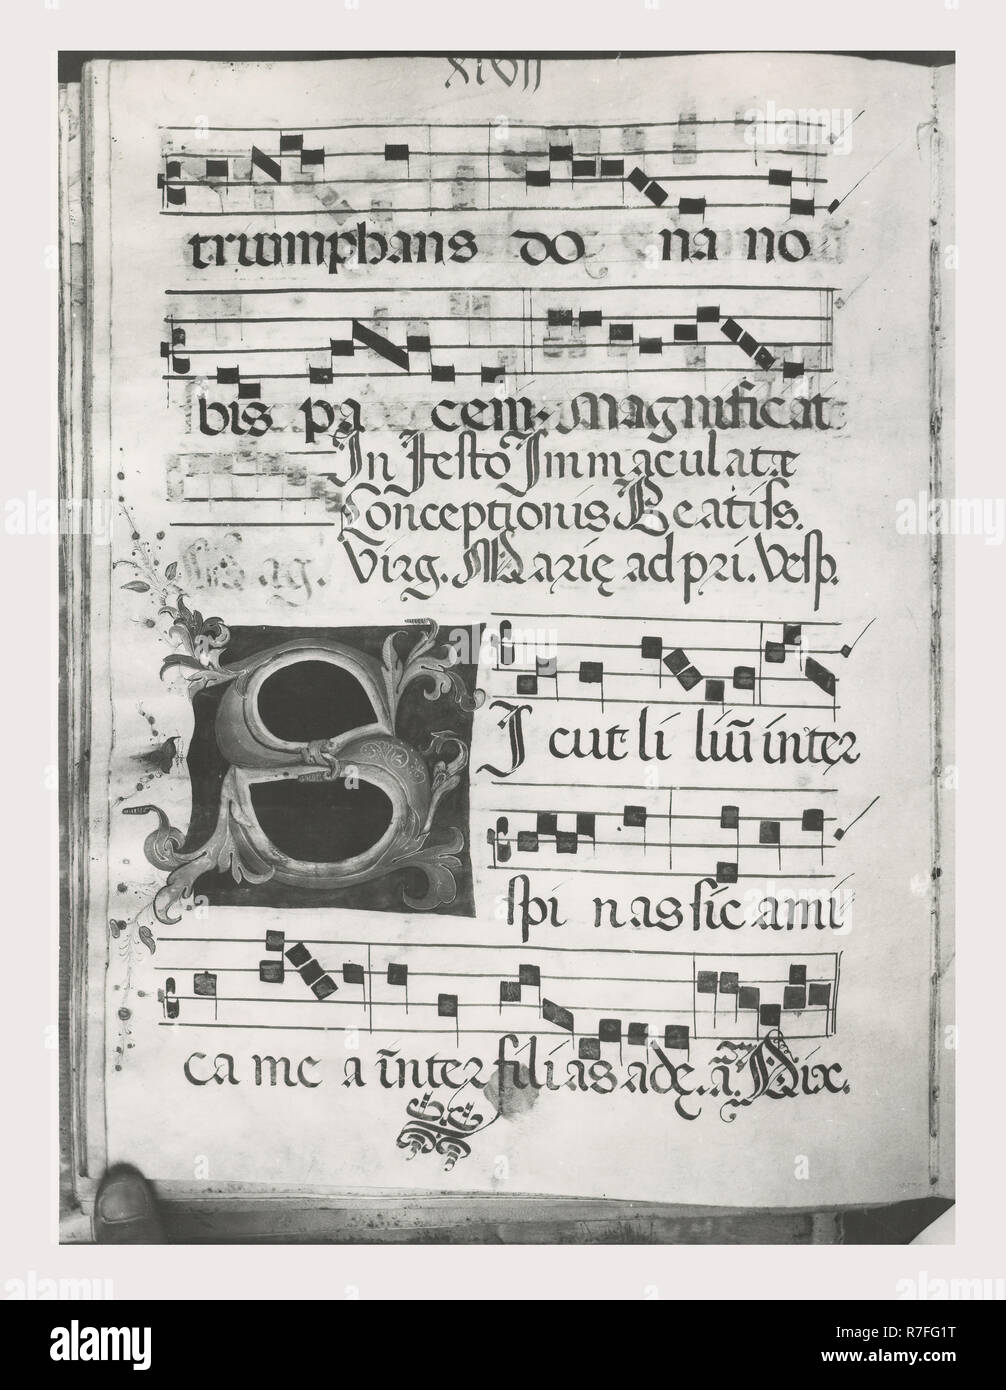 XLVII
triumphans do na no
bis pa cem. Magnificat
In Festo Immaculatæ
Conceptionis Beatiss.
Virg. Marię ad pri. Vesp.
Sicut li liū inter
spi nas sic ami
ca me a inter filias adę. añ. Dix.
alamy
Image ID: R7FG1T
www.alamy.com